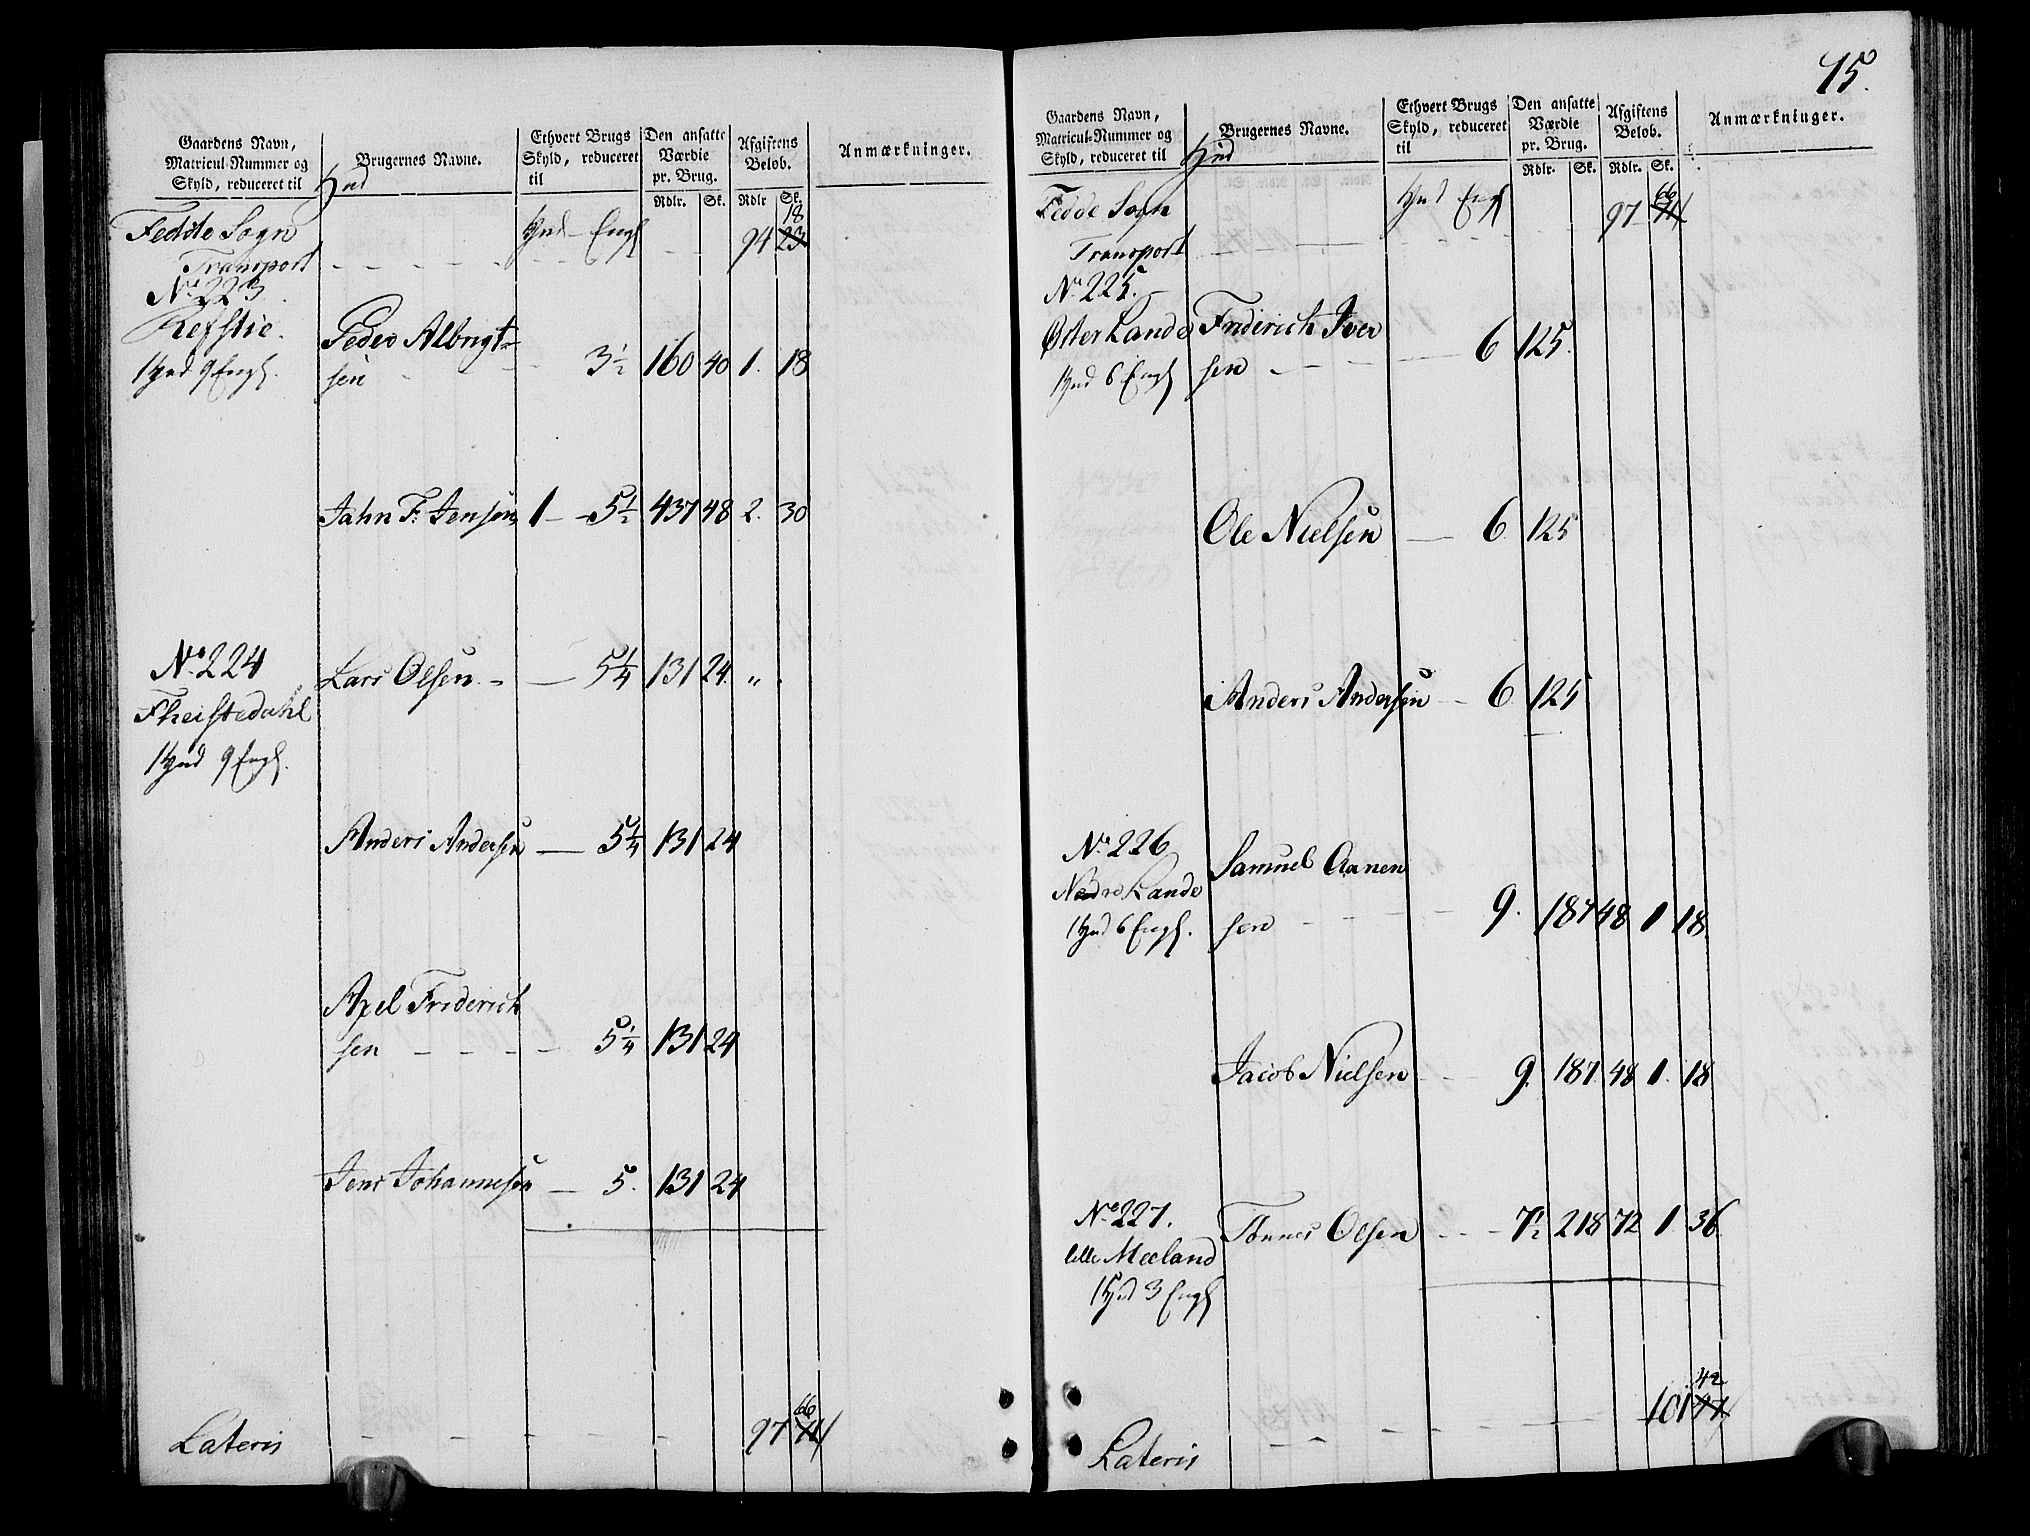 Gaardens Navn,
Matricul-Nummer og
Skyld, reduceret til
Hud
Brugernes Navne.
Ethvert Brugs
Skyld, reduceret
til
Den ansatte
Værdie
pr. Brug.
Rdlr. Sk.
Afgiftens
Beløb.
Rdlr Sk.
Anmærkninger.
Fedde Sogn Hud Engl 18
Transport 94 23
No 223
Refstie. Peder Albrigt-
1 Hud 9 Engl. sen 3½ 160 40 1. 18
Jahn F. Jensen 1 - 5½ 437 48 2. 30
No 224 Lars Olsen 5¼ 131 24 "
Fheistedahl
1 Hud 9 Engl.
Anders Andersen 5¼ 131 24
Axel Friderich
sen 5¼ 131 24
Jens Johannesen 5. 131 24
66
Lateris 97 71
15.
Gaardens Navn,
Matricul-Nummer og
Skyld, reduceret til
Hud
Brugernes Navne.
Ethvert Brugs
Skyld, reduceret
til
Den ansatte
Værdie
pr. Brug.
Rdlr. Sk.
Afgiftens
Beløb.
Rdlr. Sk.
Anmærkninger.
Fedde Sogn Hud Engl 66
Transport 97 71
No 225.
Øster Lande Friderich Iver
1 Hud 6 Engl sen 6 125.
Ole Nielsen 6 125
Anders Andersen 6 125
No 226 Samuel Aanen
Nedre Lande sen 9. 187 48 1 18.
1 Hud 6 Engl.
Jacob Nielsen 9. 187. 48 1. 18
No 227. Tønnes Olsen 7½ 218 72 1 36
lille Mæland
1 Hud 3 Engl
42
Lateris 101 47